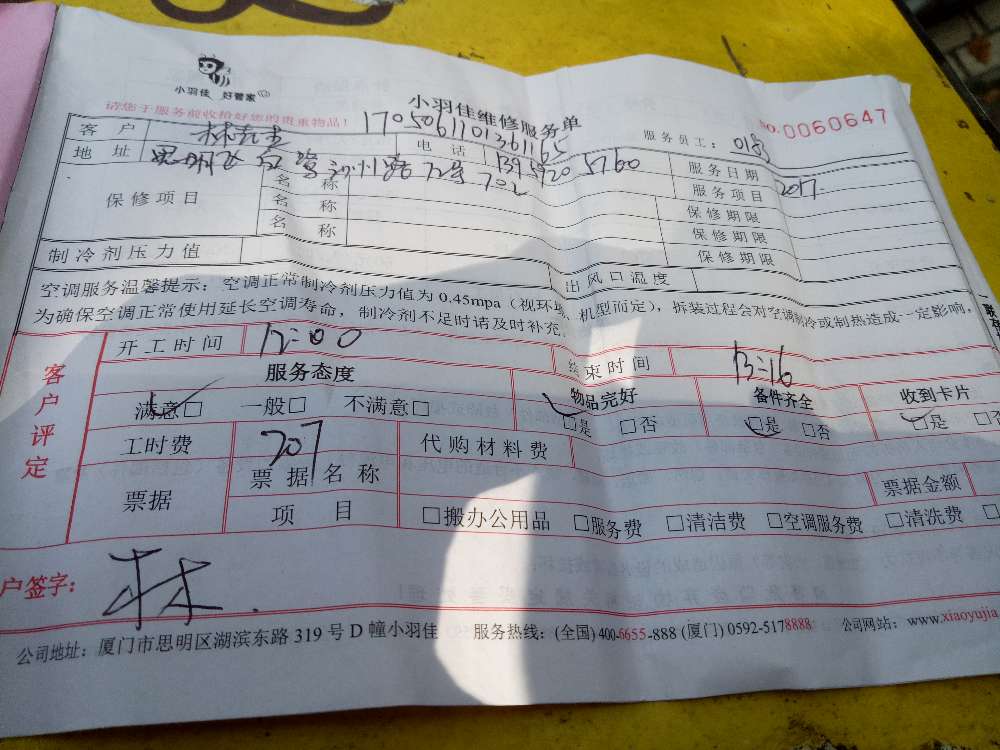 小羽佳 好管家
请您于服务前收拾好您的贵重物品！
小羽佳维修服务单
170506110136165
No.0060647
服务员工：0185
客户 林 电话 139 5920 5760 服务日期 2017
地址 思明区 702 服务项目
保修项目 名称 保修期限
名称 保修期限
名称 保修期限
制冷剂压力值 出风口温度
空调服务温馨提示：空调正常制冷剂压力值为0.45mpa（视环境、机型而定），拆装过程会对空调制冷或制热造成一定影响，
为确保空调正常使用延长空调寿命，制冷剂不足时请及时补充。
客户评定
开工时间 12:00 结束时间 13:16
服务态度 物品完好 备件齐全 收到卡片
满意□ 一般□ 不满意□ □是 □否 □是 □否 □是 □否
工时费 207 代购材料费
票据 票据名称 票据金额
项目 □搬办公用品 □服务费 □清洁费 □空调服务费 □清洗费 □
户签字： 林
公司地址：厦门市思明区湖滨东路319号D幢小羽佳 服务热线：(全国) 400-6655-888 (厦门) 0592-5178888 公司网站：www.xiaoyujia